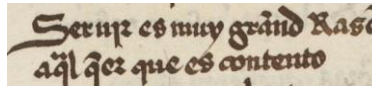 Seruir es muy grãnd Rasõ
aq̃l q̃er que es contento